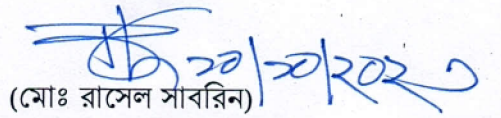 ২০/১০/২০২৩
(মোঃ রাসেল সাবরিন)